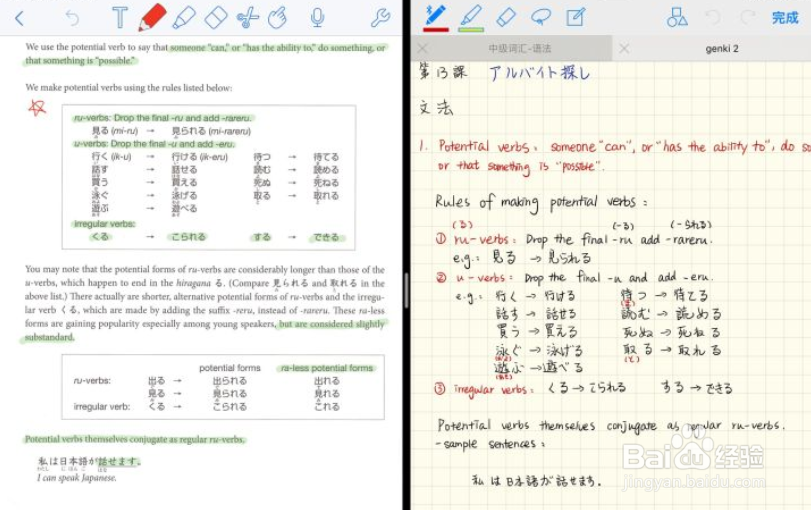 We use the potential verb to say that someone "can," or "has the ability to," do something, or
that something is "possible."
We make potential verbs using the rules listed below:
ru-verbs: Drop the final -ru and add -rareru.
見る (mi-ru) → 見られる (mi-rareru)
u-verbs: Drop the final -u and add -eru.
行く (ik-u) → 行ける (ik-eru) 待つ → 待てる
話す → 話せる 読む → 読める
買う → 買える 死ぬ → 死ねる
泳ぐ → 泳げる 取る → 取れる
遊ぶ → 遊べる
irregular verbs:
くる → こられる する → できる
You may note that the potential forms of ru-verbs are considerably longer than those of the
u-verbs, which happen to end in the hiragana る. (Compare 見られる and 取れる in the
above list.) There actually are shorter, alternative potential forms of ru-verbs and the irregu-
lar verb くる, which are made by adding the suffix -reru, instead of -rareru. These ra-less
forms are gaining popularity especially among young speakers, but are considered slightly
substandard.
potential forms ra-less potential forms
ru-verbs: 出る → 出られる 出れる
見る → 見られる 見れる
irregular verb: くる → こられる これる
Potential verbs themselves conjugate as regular ru-verbs.
私は日本語が話せます。
I can speak Japanese.
完成
中级词汇-语法
genki 2
第13課 アルバイト探し
文法
1. Potential verbs: someone "can", or "has the ability to", do so
or that something is "possible".
Rules of making potential verbs:
(る) (-る) (-られる)
① ru-verbs: Drop the final -ru add -rareru.
e.g: 見る → 見られる
② u-verbs: Drop the final -u and add -eru.
e.g: 行く → 行ける 待つ → 待てる
話す → 話せる 読む → 読める
買う → 買える 死ぬ → 死ねる
泳ぐ → 泳げる 取る → 取れる
遊ぶ → 遊べる
③ irregular verbs: くる → こられる する → できる
Potential verbs themselves conjugate as regular ru-verbs.
- sample sentences:
私は日本語が話せます.
Baidu经验
jingyan.baidu.com